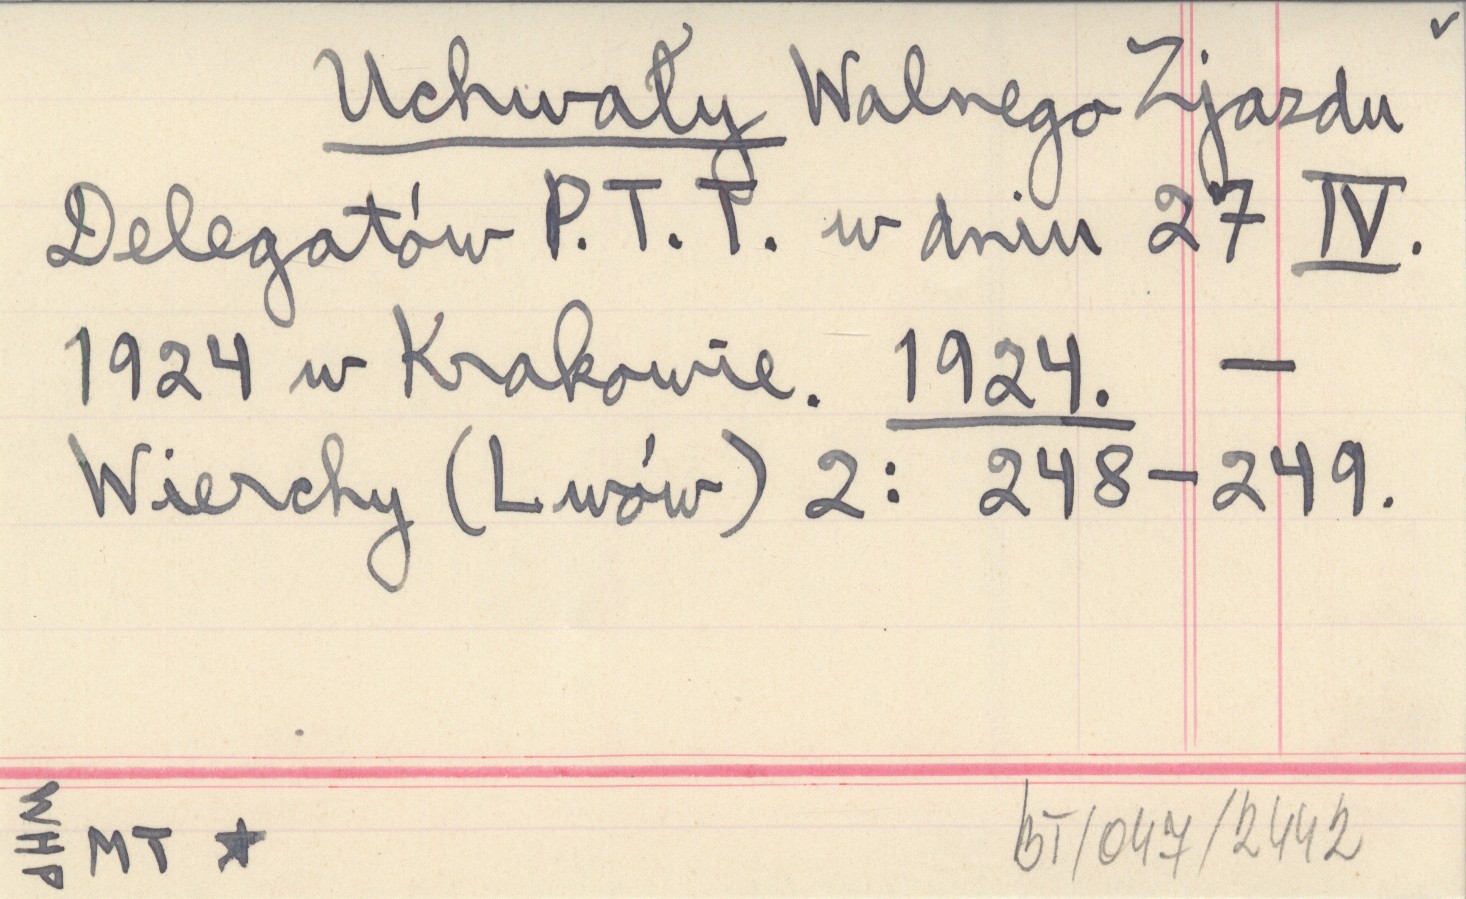 Uchwały Walnego Zjazdu
Delegatów P.T.T. w dniu 27 IV.
1924 w Krakowie. 1924. —
Wierchy (Lwów) 2: 248-249.
WHP
MT ★
BT/047/2442